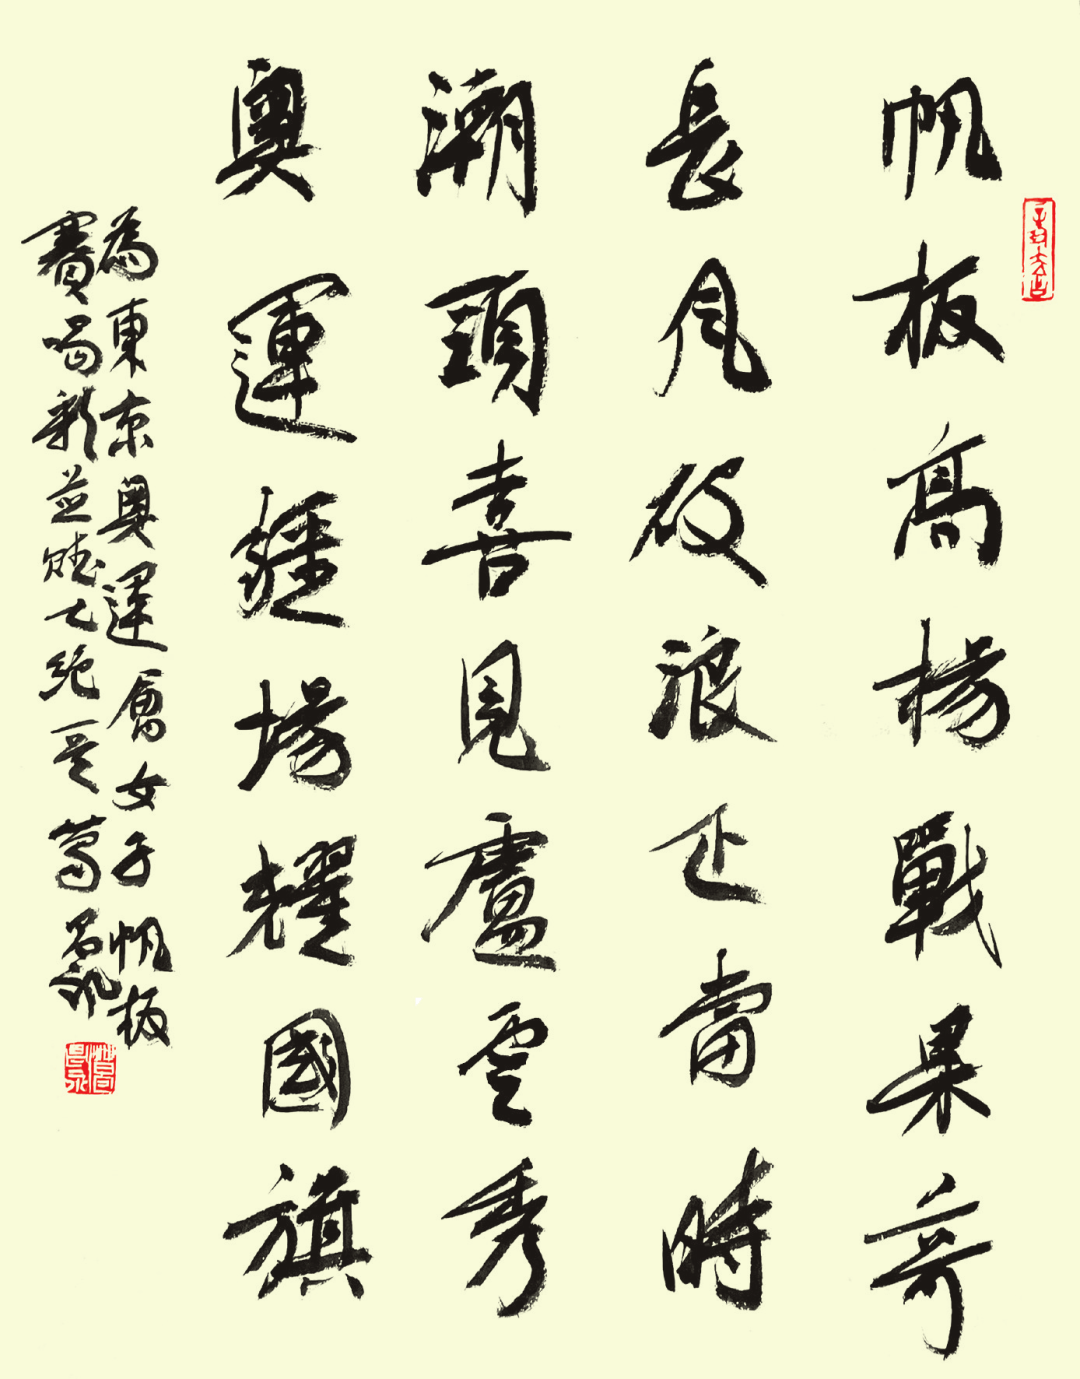 帆板高揚戰果奇
長風破浪正當時
潮頭喜見盧雲秀
奧運疆場耀國旗
為東京奧運會女子帆板
賽喝彩並賦七絕一首